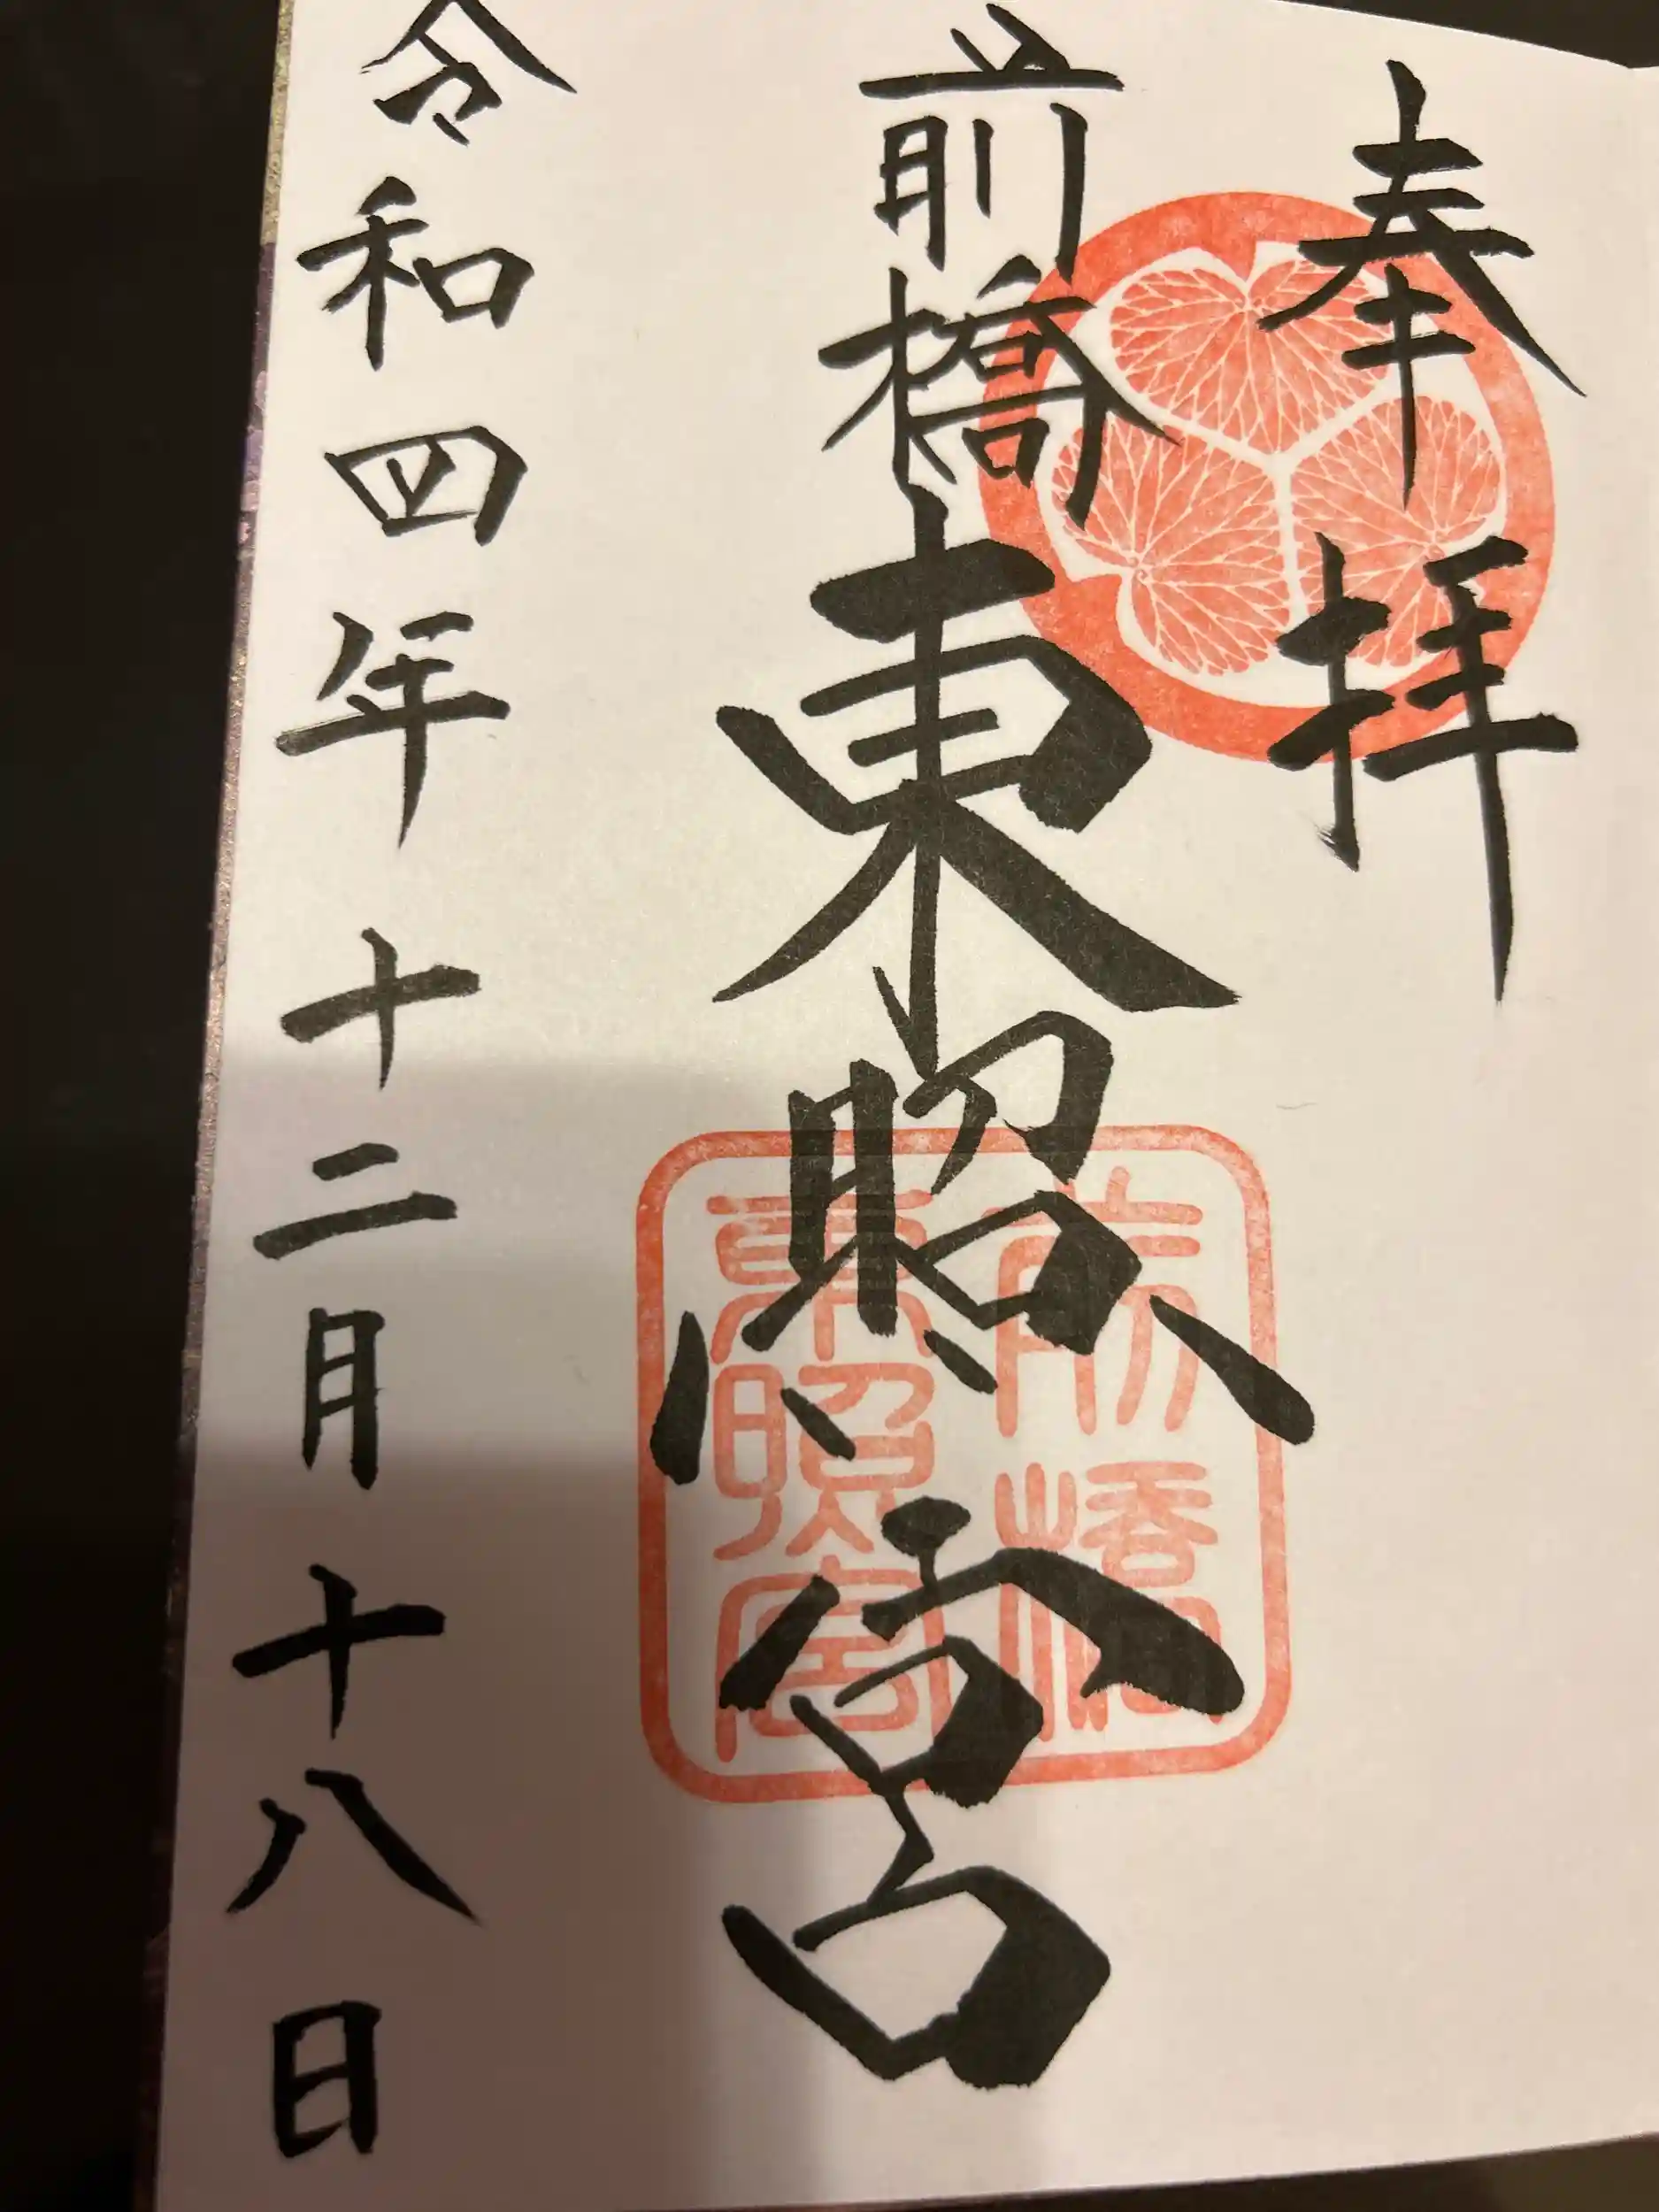 奉拝
前橋東照宮
前橋
東照宮
令和四年十二月十八日